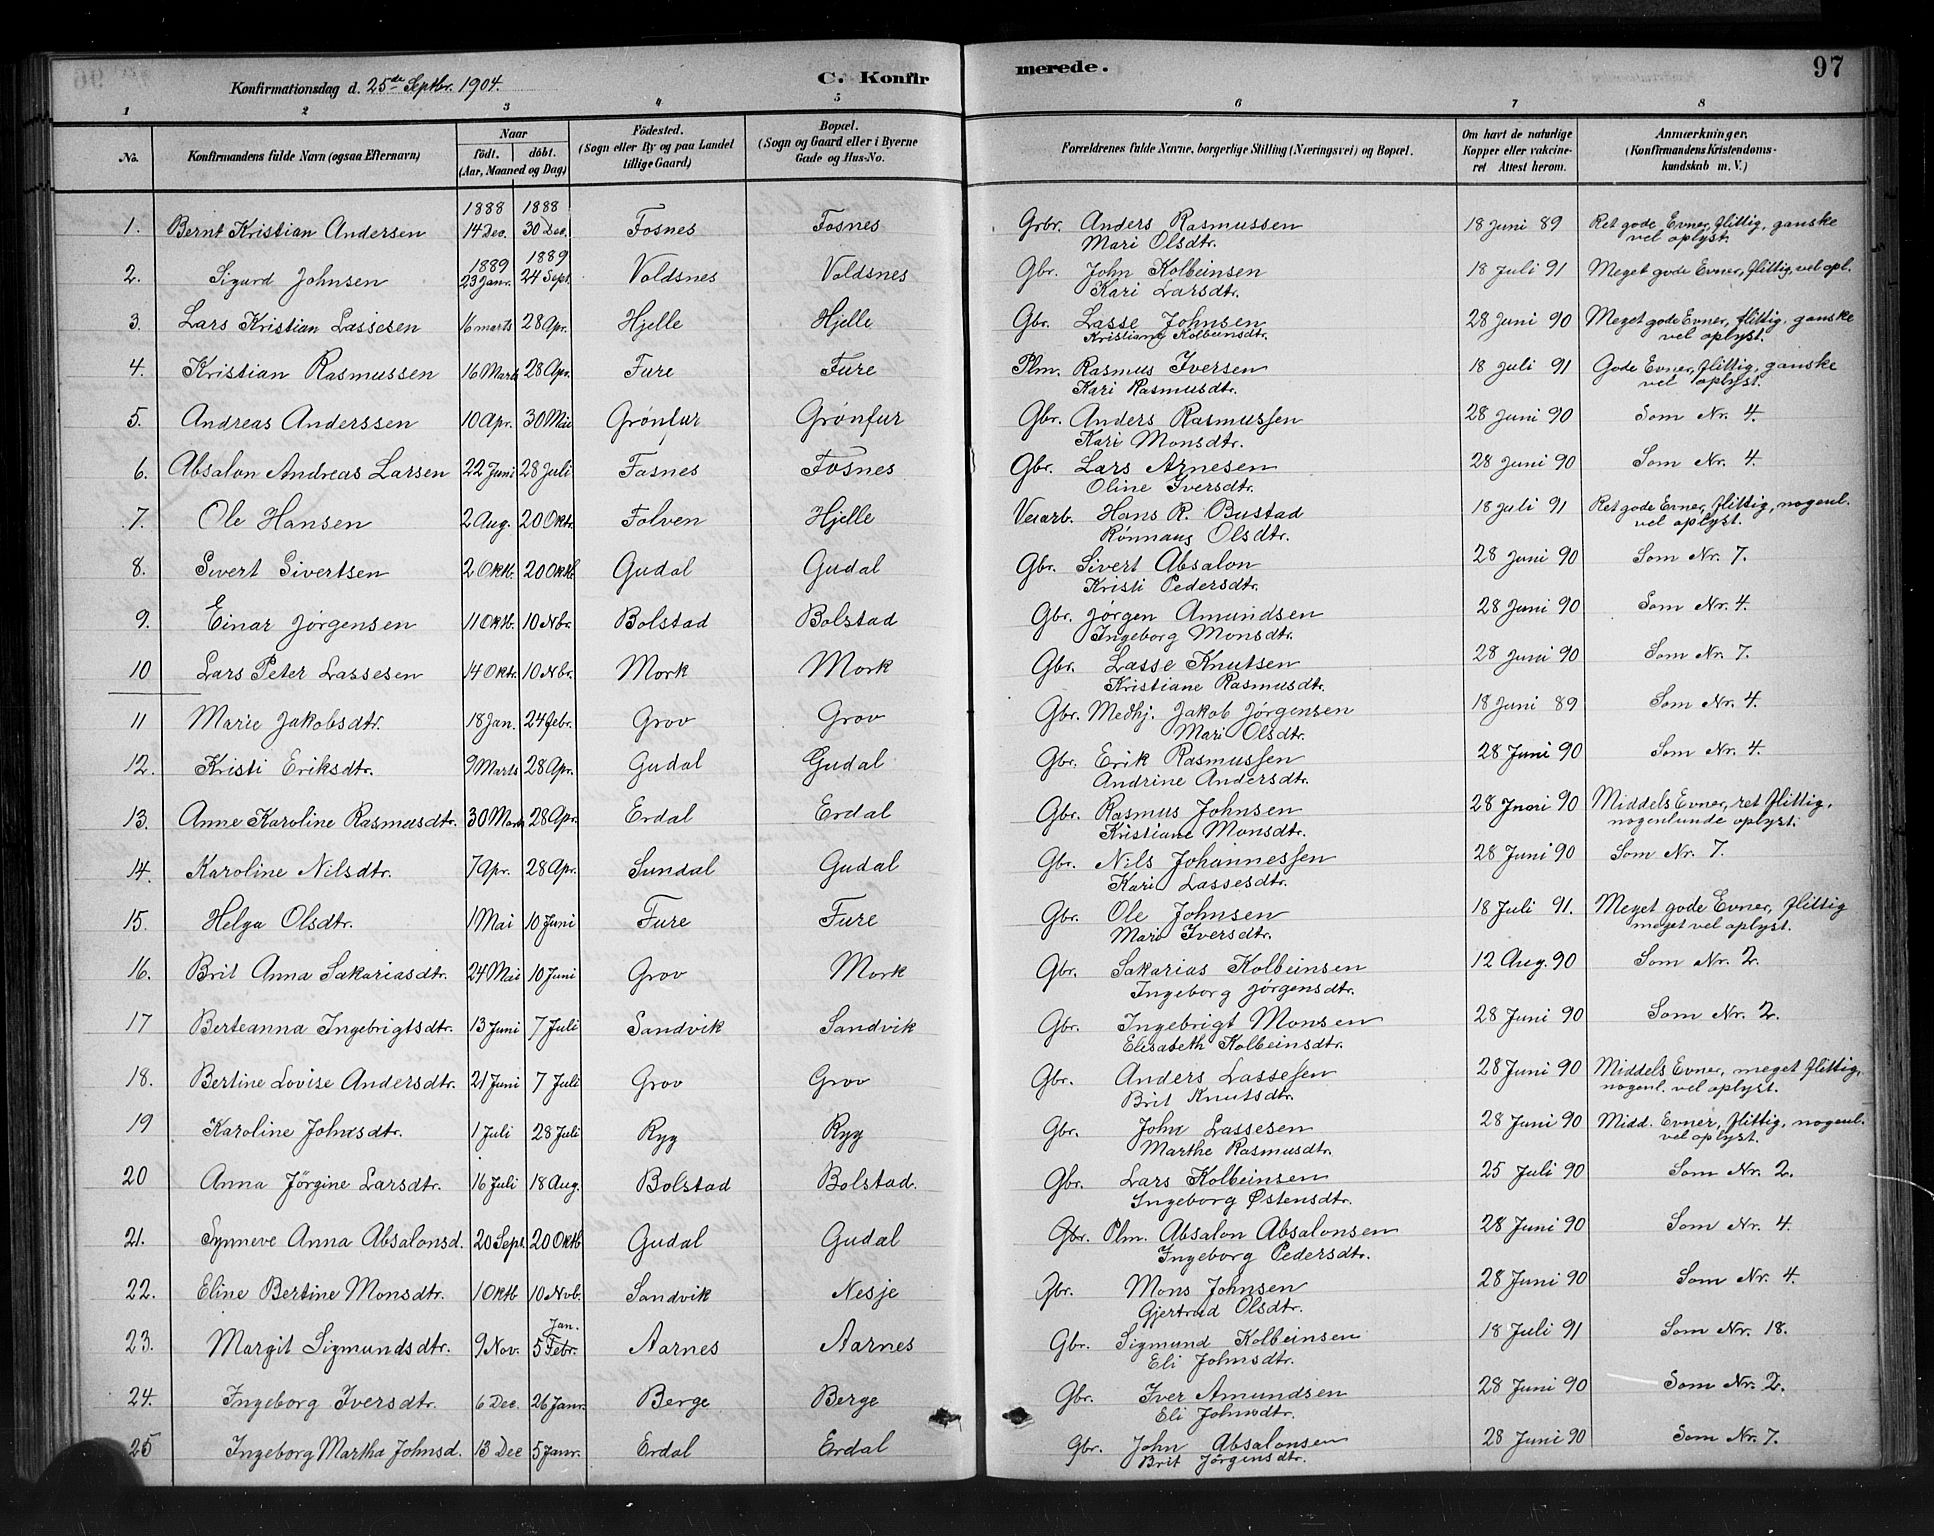 97
Konfirmationsdag d. 25de Septbr. 1904. C. Konfirmerede.
1 2 3 4 5 6 7 8
No. Konfirmandens fulde Navn (ogsaa Efternavn) Naar födt. döbt. (Aar, Maaned og Dag) Födested. (Sogn eller By og paa Landet tillige Gaard) Bopæl. (Sogn og Gaard eller i Byerne Gade og Hus-No. Forældrenes fulde Navne, borgerlige Stilling (Næringsvei) og Bopæl. Om havt de naturlige Kopper eller vakcineret Attest herom. Anmærkninger. (Konfirmandens Kristendomskundskab m. V.)
1888 1888
1. Bernt Kristian Andersen 14 Dec. 30 Dec. Fosnes Fosnes Grbr. Anders Rasmussen 18 Juni 89 Ret gode Evner, flittig, ganske
Mari Olsdtr. vel oplyst.
1889 1889
2. Sigurd Johnsen 23 Janr. 24 Sept. Valdsnes Valdsnes Gbr. John Kolbeinsen 18 Juli 91 Meget gode Evner, flittig, vel opl.
Kari Larsdtr.
3. Lars Kristian Lassesen 16 marts 28 Apr. Hjelle Hjelle Gbr. Lasse Johnsen 28 Juni 90 Meget gode Evner, flittig, ganske
Kristiane Kolbeinsdtr. vel oplyst.
4. Kristian Rasmussen 16 Marts 28 Apr. Fure Fure Plm. Rasmus Iversen 18 Juli 91 Gode Evner, flittig, ganske
Kari Rasmusdtr. vel oplyst.
5. Andreas Anderssen 10 Apr. 30 Mai Grönfur Grönfur Gbr. Anders Rasmussen 28 Juni 90 Som Nr. 4.
Kari Monsdtr.
6. Absalon Andreas Larsen 22 Juni 28 Juli Fosnes Fosnes Gbr. Lars Arnesen 28 Juni 90 Som Nr. 4.
Oline Iversdtr.
7. Ole Hansen 2 Aug. 20 Oktr. Folven Hjelle Veiarb. Hans R. Bustad 18 Juli 91 Ret gode Evner, flittig, nogenl.
Rønnaug Olsdtr. vel oplyst.
8. Sivert Sivertsen 2 Oktb. 20 Oktb Gudal Gudal Gbr. Sivert Absalon 28 Juni 90 Som Nr. 7.
Kristi Pedersdtr.
9. Einar Jørgensen 11 Oktb. 10 Nbr. Bolstad Bolstad Gbr. Jørgen Amundsen 28 Juni 90 Som Nr. 4.
Ingeborg Monsdtr.
10 Lars Peter Lassesen 14 Oktr. 10 Nbr. Mork Mork Gbr. Lasse Knutsen 28 Juni 90 Som Nr. 7.
Kristiane Rasmusdtr.
11 Marie Jakobsdtr. 18 Jan. 24 Febr. Grov Grov Gbr. Medhj. Jakob Jørgensen 18 Juni 89 Som Nr. 4.
Mari Olsdtr.
12. Kristi Eriksdtr. 9 Marts 28 Apr. Gudal Gudal Gbr. Erik Rasmussen 28 Juni 90 Som Nr. 4
Andrine Andersdtr.
13. Anne Karoline Rasmusdtr. 30 Marts 28 Apr. Erdal Erdal Gbr. Rasmus Johnsen 28 Juni 90 Middels Evner, ret flittig,
Kristiane Monsdtr. nogenlunde oplyst.
14. Karoline Nilsdtr. 7 Apr. 28 Apr. Sundal Gudal Gbr. Nils Johannessen 28 Juni 90 Som Nr. 7.
Kari Lassesdtr.
15. Helga Olsdtr. 1 Mai 10 Juni Fure Fure Gbr. Ole Johnsen 18 Juli 91. Meget gode Evner, flittig
Mari Iversdtr. meget vel oplyst.
16. Brit Anna Sakariasdtr. 24 Mai 10 Juni Grov Mork Gbr. Sakarias Kolbeinsen 12 Aug. 90 Som Nr. 2.
Ingeborg Jørgensdtr.
17 Berteanna Ingebrigtsdtr. 13 Juni 7 Juli Sandvik Sandvik Gbr. Ingebrigt Monsen 28 Juni 90 Som Nr. 2.
Elisabeth Kolbeinsdtr.
18. Bertine Lovise Andersdtr. 21 Juni 7 Juli Grov Grov Gbr. Anders Lassesen 28 Juni 90 Middels Evner, meget flittig,
Brit Knutsdtr. nogenl. vel oplyst.
19 Karoline Johnsdtr. 1 Juli 28 Juli Ryg Ryg Gbr. John Lassesen 28 Juni 90 Midd. Evner, flittig, nogenl.
Marthe Rasmusdtr. vel oplyst.
20 Anna Jørgine Larsdtr. 16 Juli 18 Aug. Bolstad Bolstad. Gbr. Lars Kolbeinsen 25 Juli 90 Som Nr. 2.
Ingeborg Østensdtr.
21. Synneve Anna Absalonsd. 20 Sept. 20 Oktb Gudal Gudal Gbr. Plm. Absalon Absalonsen 28 Juni 90 Som Nr. 4
Ingeborg Pedersdtr.
22. Eline Bertine Monsdtr. 1 Oktb 10 Novb. Sandvik Nesje Gbr. Mons Johnsen 28 Juni 90 Som Nr. 4.
Gjertrud Olsdtr.
Jan.
23. Margit Sigmundsdtr. 9 Nov. 5 Febr. Aarnes Aarnes Gbr. Sigmund Kolbeinsen 18 Juli 91 Som Nr. 18.
Eli Johnsdtr.
24. Ingeborg Iversdtr. 6 Dec. 26 Janr. Berge Berge Gbr. Iver Amundsen 28 Juni 90 Som Nr. 2.
Eli Johnsdtr.
25 Ingeborg Martha Johnsd. 13 Dec 5 Janr. Erdal Erdal Gbr. John Absalonsen 28 Juni 90 Som Nr. 7.
Brit Jørgensdtr.